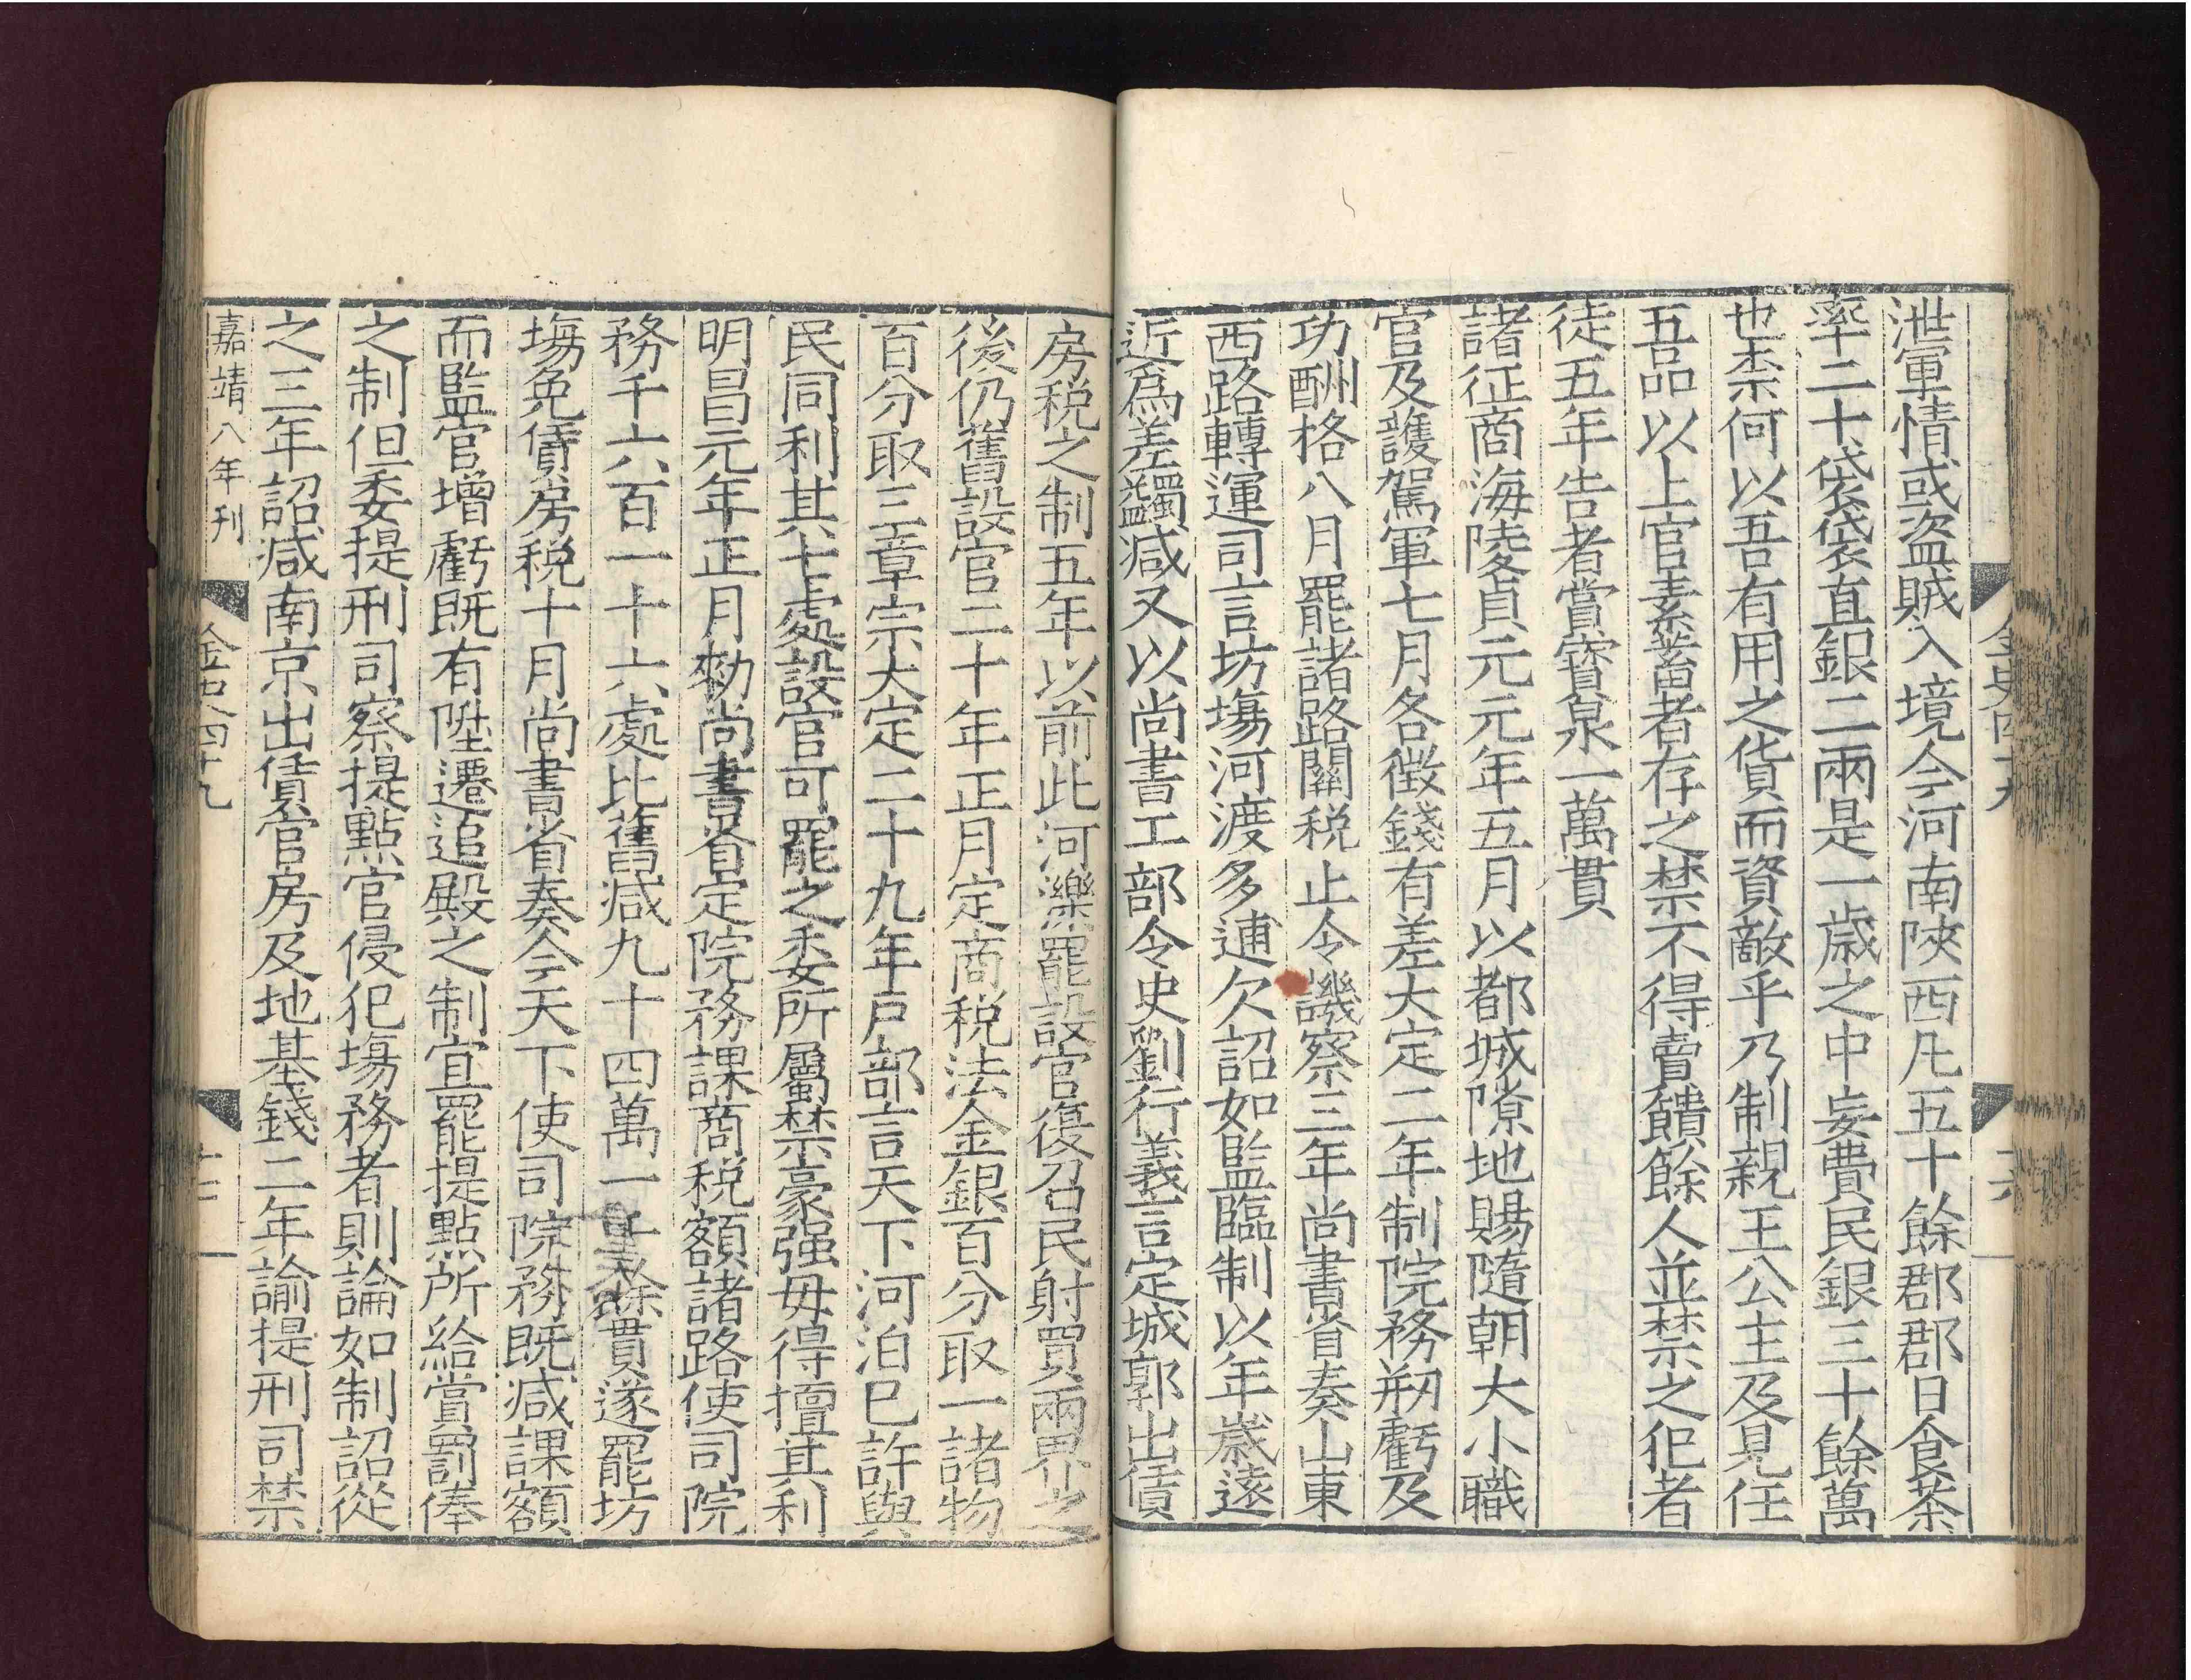 泄軍情或盜賊入境今河南陝西凡五十餘郡郡日食茶
率二十袋袋直銀二兩是一歲之中妄費民銀三十餘萬
也柰何以吾有用之貨而資敵乎乃制親王公主及見任
五品以上官素蓄者存之禁不得賣饋餘人並禁之犯者
徒五年告者賞寶泉一萬貫
諸征商海陵貞元元年五月以都城隙地賜隨朝大小職
官及護駕軍七月各徵錢有差大定二年制院務刱虧及
功酬格八月罷諸路關税止令譏察三年尚書省奏山東
西路轉運司言坊塲河渡多逋欠詔如監臨制以年歲遠
近爲差蠲减又以尚書工部令史劉行義言定城郭出賃
房税之制五年以前此河濼罷設官復召民射買兩界之
後仍舊設官二十年正月定商税法金銀百分取一諸物
百分取三章宗大定二十九年戶部言天下河泊已許與
民同利其七處設官可罷之委所屬禁豪强毋得擅其利
明昌元年正月勑尚書省定院務課商税額諸路使司院
務千六百一十六處比舊减九十四萬一千餘貫遂罷坊
塲免賃房税十月尚書省奏今天下使司院務既减課額
而監官增虧既有陞遷追殿之制宜罷提點所給賞罰俸
之制但委提刑司察提點官侵犯塲務者則論如制詔從
之三年詔减南京出賃官房及地基錢二年諭提刑司禁
嘉靖八年刊
金史四十九